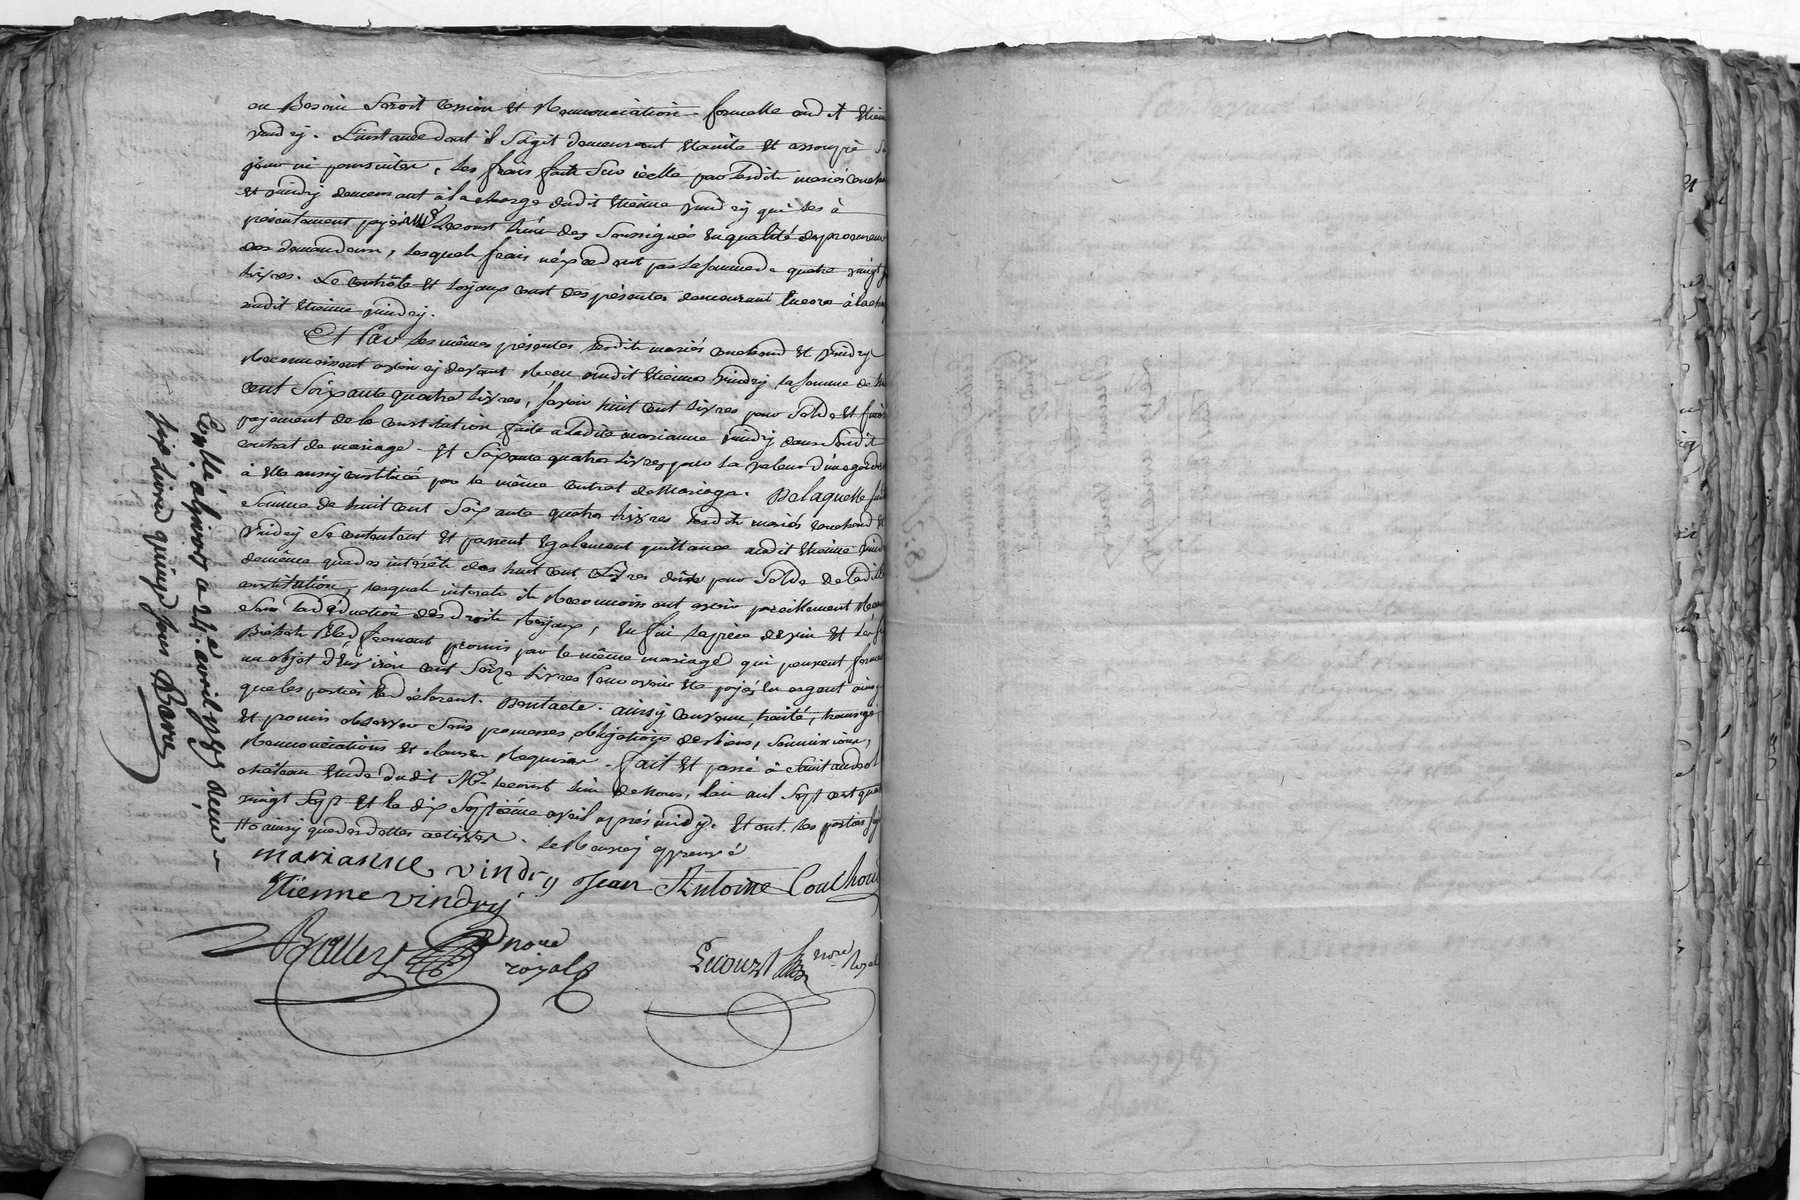 au Besoin seroit cession et Renonciation formelle audit Etienne
vindry. L'instance dont il s'agit demeurant éteinte et assoupie
pour ni poursuites, les frais faits sur icelle par lesdits mariés Couchoud
et vindry demeurant à la charge dudit Etienne vindry qui les a
présentement payé à Me Lecourt l'un des soussignés en qualité de procureur
des demandeurs, lesquels frais n'excedent pas la somme de quatre vingt
livres. Le contrôle et loyaux cout des présentes demeurant encore à la charge
dudit Etienne vindry.
Et Par les mêmes présentes lesdits mariés Couchoud et vindry
Reconnoissent avoir cy devant Recu dudit Etienne vindry la somme de huit
cent soixante quatre livres, savoir huit cent livres pour solde et fin de
payement de la constitution faite à ladite marianne vindry dans sondit
contrat de mariage et soixante quatre livres pour la valeur d'une garderobe
à elle aussy constituée par le même contrat de Mariage. De laquelle susdite
somme de huit cent soixante quatre livres lesdits mariés Couchoud et
vindry se contentent et passent également quittance audit Etienne vindry
de même que des intérêts des huit cent livres dûs pour solde de ladite
constitution, lesquels interets ils Reconnoissent avoir pareillement Recu
sans la déduction des droits Royaux, en fin la pièce de vin et les
Bichets Bled froment promis par le même mariage qui peuvent former
un objet d'environ cent seize livres pour avoir eté payés en argent ainsy
que les parties le déclarent. Dont acte. ainsy convenu, traité, transigé,
et promis observer sous promesses, obligations de biens, soumissions,
Renonciations et clauses Requises. fait et passé à Saint andéol
château etude dudit Me Lecourt l'un de Nous, l'an mil sept cent quatre
vingt sept et le dix septième avril après midy. Et ont les parties signé
ainsy que des dettes actives. Le Renvoy approuvé
marianne vindry Jean Antoine Couchoud
Etienne vindry
nore
royal
Lecourt nore Royal
Conllé à Givors ce 24e avril 1787 Reçu
six Livres quinze sous Barre